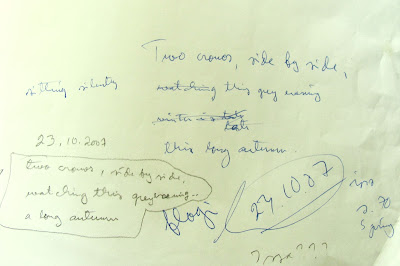 Two crows, side by side,
watching this grey evening
winter is late
late
this long autumn.
sitting silently
23.10.2007
two crows, side by side,
watching this grey evening..
a long autumn
blog
24.10.07
p. 70
Issa???